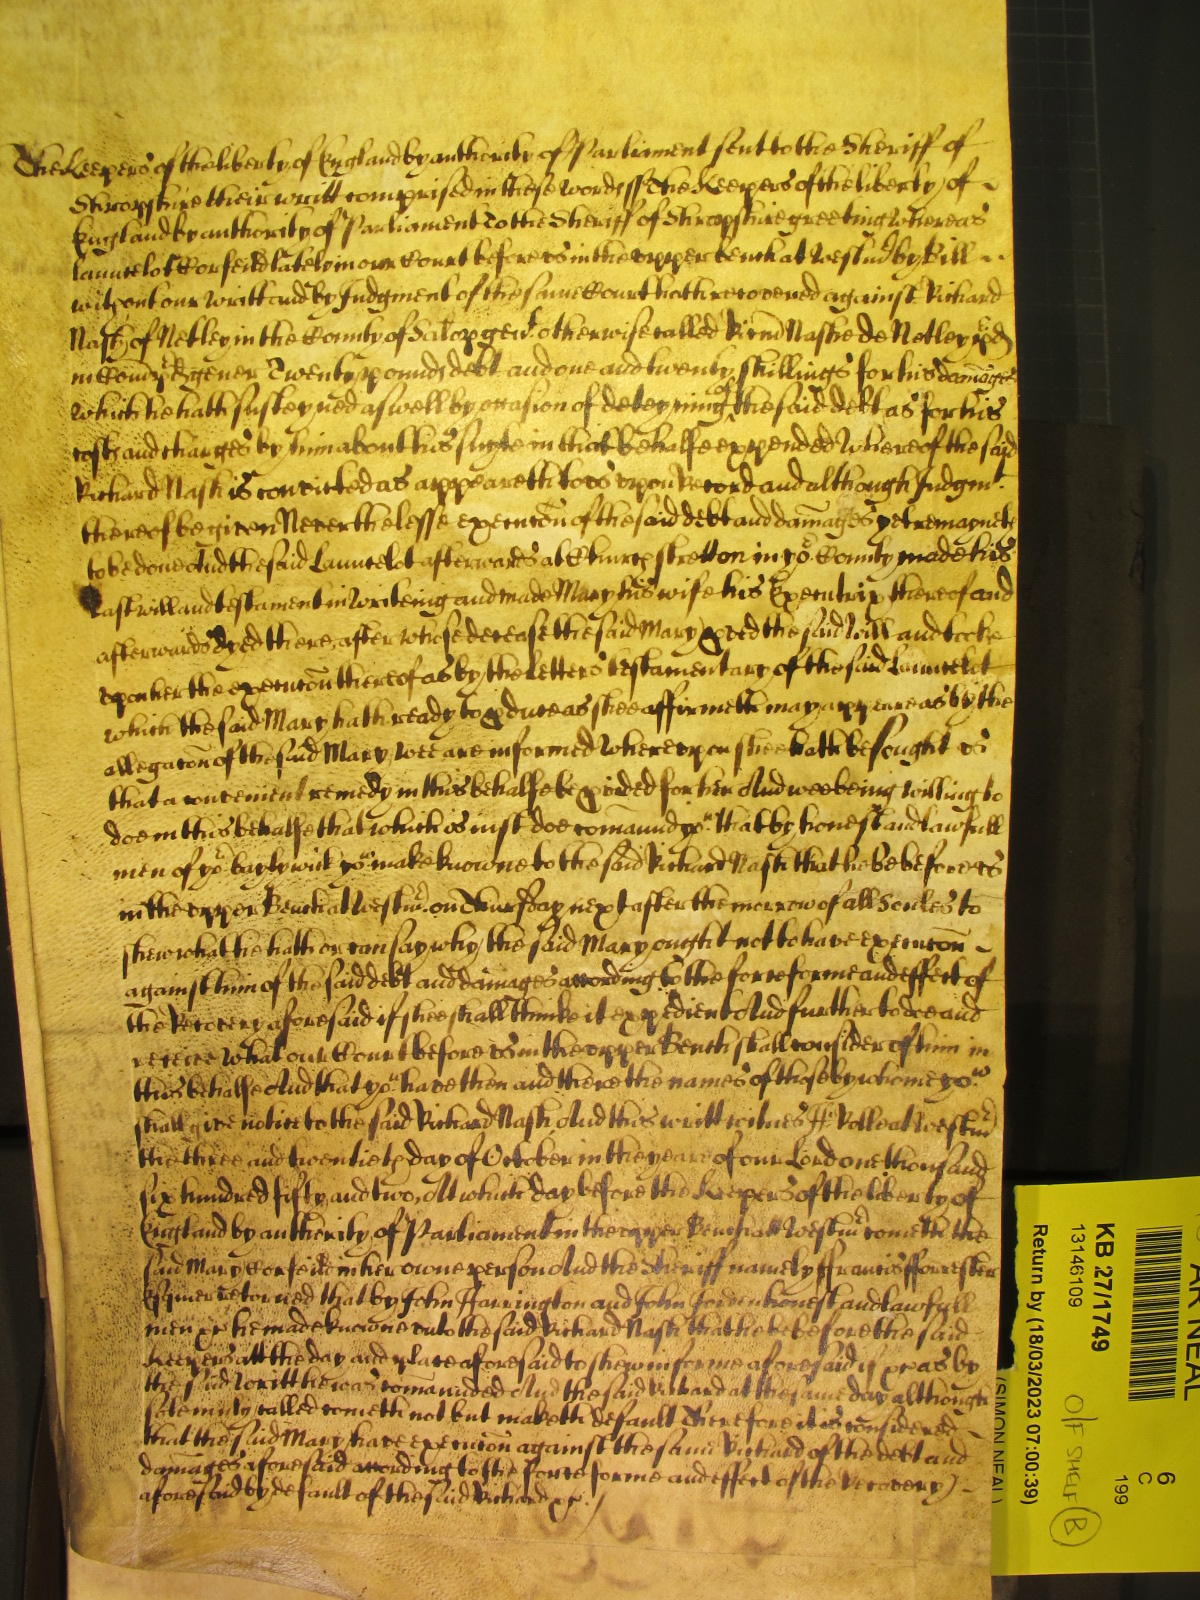 The Keepers of the liberty of England by authority of Parliament sent to the Sheriff of
Shropshire their writt comprised in these words ss The Keepers of the liberty of
England by authority of Parliament To the Sheriff of Shropshire greeting Whereas
Launcelot Corfeild lately in our Court before us in the upper bench at Westmr by Bill
without our Writt and by Judgment of the same Court hath recovered against Richard
Nash of Netley in the County of Salop gent otherwise called Ricum Nashe de Netley
in Com gener Twenty pounds debt and one and twenty shillings for his damages
which he hath susteyned aswell by occasion of deteyning of the said debt as for his
costs and charges by him about his suyte in that behalfe expended Whereof the said
Richard Nash is convicted as appeareth to us upon Record and although Judgmt
thereof be given Neverthelesse execucon of the said debt and damages yet remayneth
to be done And the said Launcelot afterwards at Church stretton in yor County made his
last will and testament in Writeing and made Mary his wife his Executrix thereof and
afterwards dyed there, after whose decease the said Mary pved the said Will and tooke
upon her the execucon thereof as by the Letters testamentary of the said Launcelot
which the said Mary hath ready to pduce as shee affirmeth may appeare as by the
allegacon of the said Mary, wee are informed Whereupon shee hath besought us
that a convenient remedy in this behalfe be pvided for her And wee being willing to
doe in this behalfe that which is just doe comaund you that by honest and lawfull
men of yor baylywick you make knowne to the said Richard Nash that he be before us
in the upper Bench at Westmr on Thursday next after the morrow of all Soules to
shew what he hath or can say why the said Mary ought not to have execucon
against him of the said debt and damages according to the force forme and effect of
the Recovery aforesaid if shee shall thinke it expedient And further to doe and
receive what our Court before us in the upper Bench shall consider of him in
this behalfe And that you have then and there the names of those by whome you
shall give notice to the said Richard Nash And this writt witnes H: Rolle at Westmr
the three and twentieth day of October in the yeare of our Lord one thousand
six hundred fifty and two, At which day before the Keepers of the liberty of
England by authority of Parliament in the upper Bench att Westmr cometh the
said Mary Corfeild in her owne person And the Sheriff namely ffrancis fforrester
Esquier retorned that by John Harrington and John Jorden honest and lawfull
men &c he made knowne unto the said Richard Nash that he be before the said
Keepers att the day and place aforesaid to shew in forme aforesaid if &c as by
the said Writt he was comaunded And the said Richard at the same day although
solemnly called cometh not but maketh default Therefore it is considered
that the said Mary have execucon against the said Richard of the debt and
damages aforesaid according to the force forme and effect of the Recovery
aforesaid by default of the said Richard &c
AR NEAL
6
C
199
KB 27/1749
13146109
Return by (18/03/2023 07:00:39)
(SIMON NEAL)
O/F SHELF B